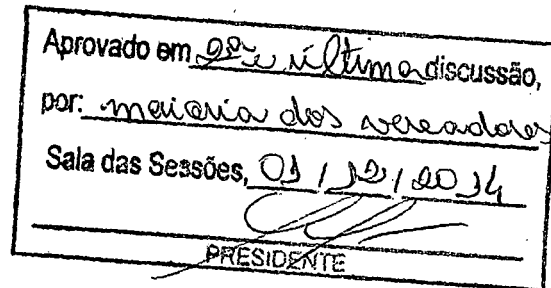 Aprovado em 2ª e última discussão,
por: maioria dos vereadores
Sala das Sessões, 01 / 12 / 2014
PRESIDENTE